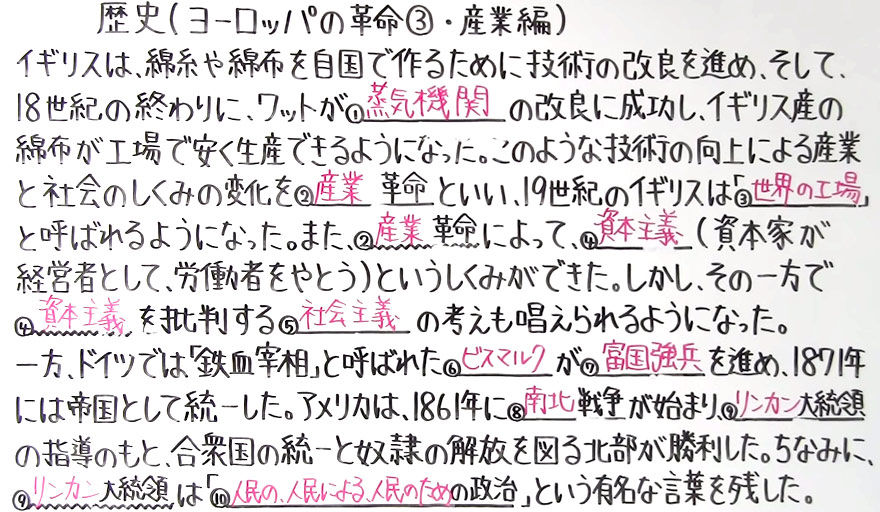 歴史(ヨーロッパの革命③・産業編)
イギリスは、綿糸や綿布を自国で作るために技術の改良を進め、そして、
18世紀の終わりに、ワットが①蒸気機関の改良に成功し、イギリス産の
綿布が工場で安く生産できるようになった。このような技術の向上による産業
と社会のしくみの変化を②産業革命といい、19世紀のイギリスは「③世界の工場」
と呼ばれるようになった。また、②産業革命によって、④資本主義(資本家が
経営者として、労働者をやとう)というしくみができた。しかし、その一方で
④資本主義を批判する⑤社会主義の考えも唱えられるようになった。
一方、ドイツでは「鉄血宰相」と呼ばれた⑥ビスマルクが⑦富国強兵を進め、1871年
には帝国として統一した。アメリカは、1861年に⑧南北戦争が始まり、⑨リンカン大統領
の指導のもと、合衆国の統一と奴隷の解放を図る北部が勝利した。ちなみに、
⑨リンカン大統領は「⑩人民の、人民による、人民のための政治」という有名な言葉を残した。